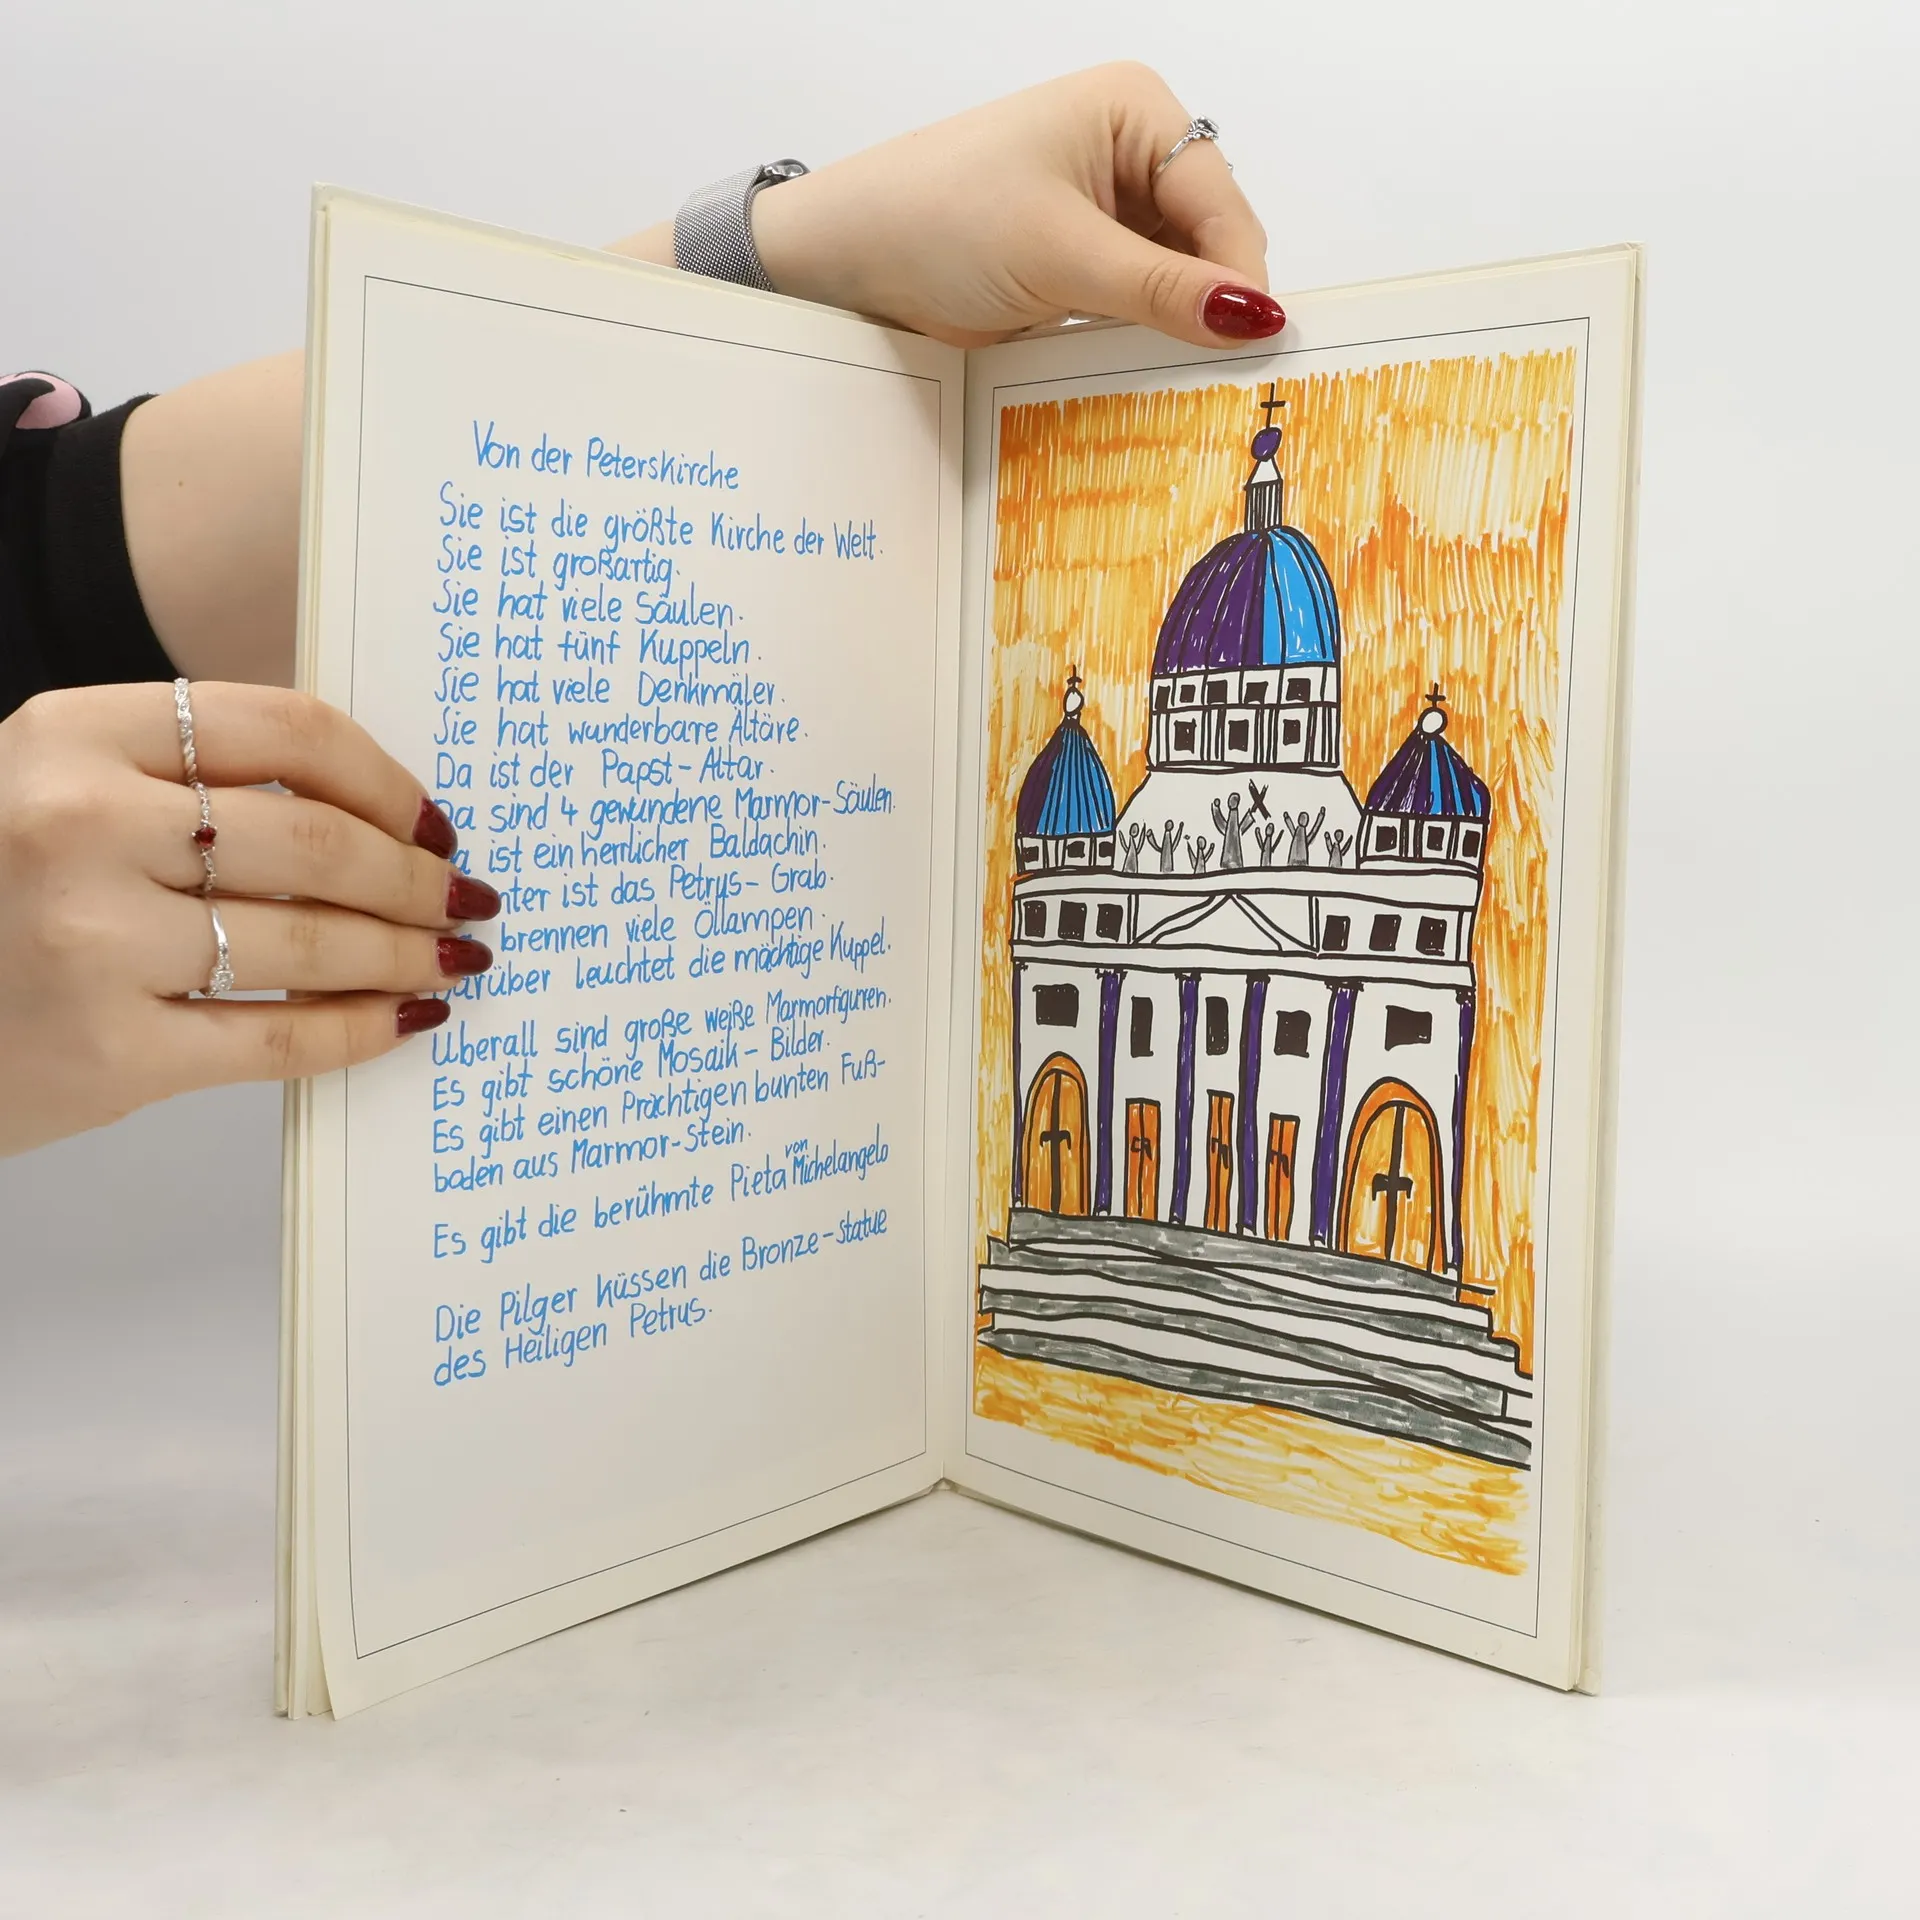 Von der Peterskirche
Sie ist die größte Kirche der Welt.
Sie ist großartig.
Sie hat viele Säulen.
Sie hat fünf Kuppeln.
Sie hat viele Denkmäler.
Sie hat wunderbare Altäre.
Da ist der Papst-Altar.
Da sind 4 gewundene Marmor-Säulen.
ist ein herrlicher Baldachin.
ist das Petrus-Grab.
brennen viele Öllampen.
Darüber leuchtet die mächtige Kuppel.
Überall sind große weiße Marmorfiguren.
Es gibt schöne Mosaik-Bilder.
Es gibt einen Prächtigen bunten Fuß-
boden aus Marmor-Stein.
Es gibt die berühmte Pieta von Michelangelo
Die Pilger küssen die Bronze-statue
des Heiligen Petrus.